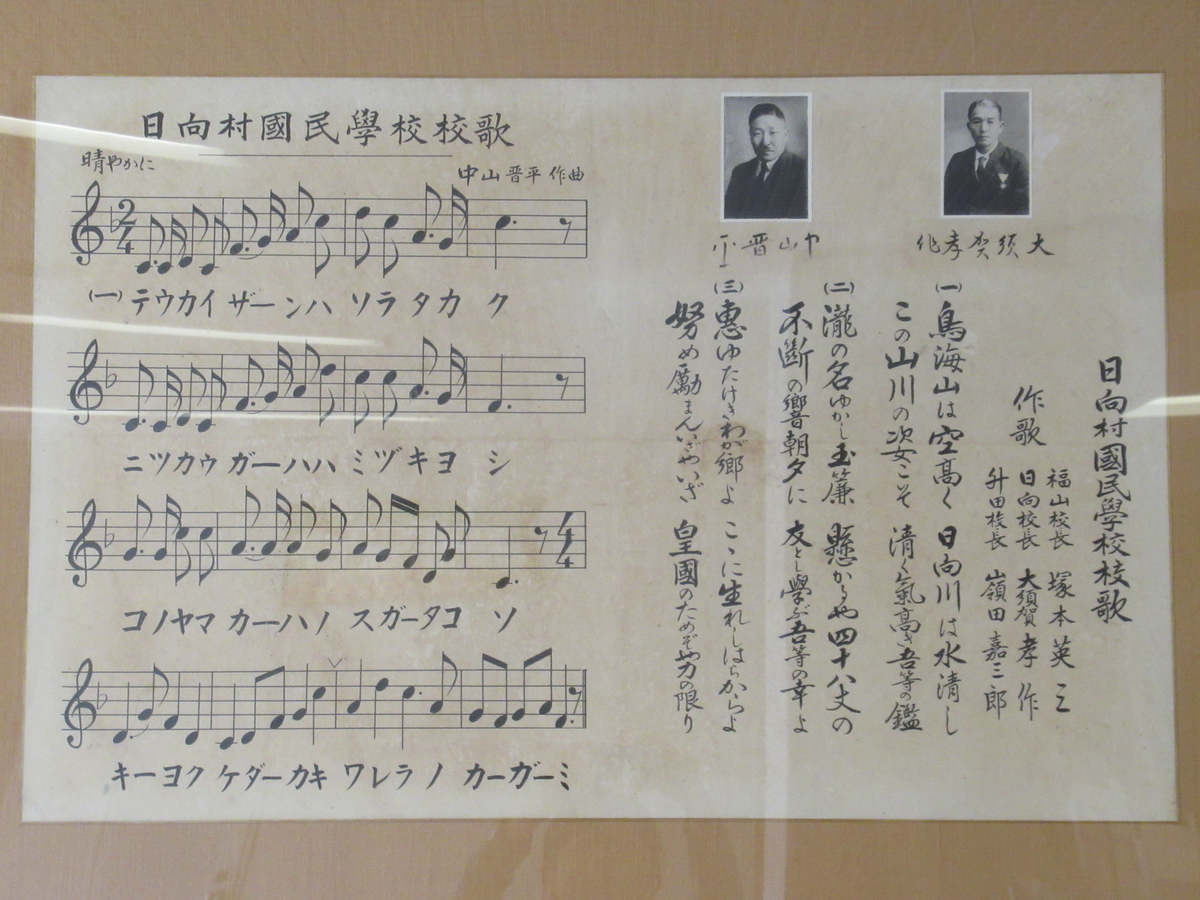 日向村國民學校校歌
晴やかに
中山晋平作曲
(一)テウカイ ザーンハ ソラタカ ク
ニツカウ ガーハハ ミヅキヨ シ
コノヤマ カーハノ スガータコ ソ
キーヨク ケダーカキ ワレラノ カーガーミ
中山晋平
大須賀孝作
日向村國民學校校歌
作歌
福山校長 塚本英三
日向校長 大須賀孝作
升田校長 嶺田嘉三郎
(一)鳥海山は空高く 日向川は水清し
この山川の姿こそ 清く氣高き吾等の鑑
(二)瀧の名ゆかし玉簾 懸からや四十八丈の
不斷の響朝夕に 友とし學ぶ吾等の幸よ
(三)惠ゆたけきわが郷よ こゝに生れしはらからよ
努め勵まんいざやいざ 皇國のためぞ力の限り